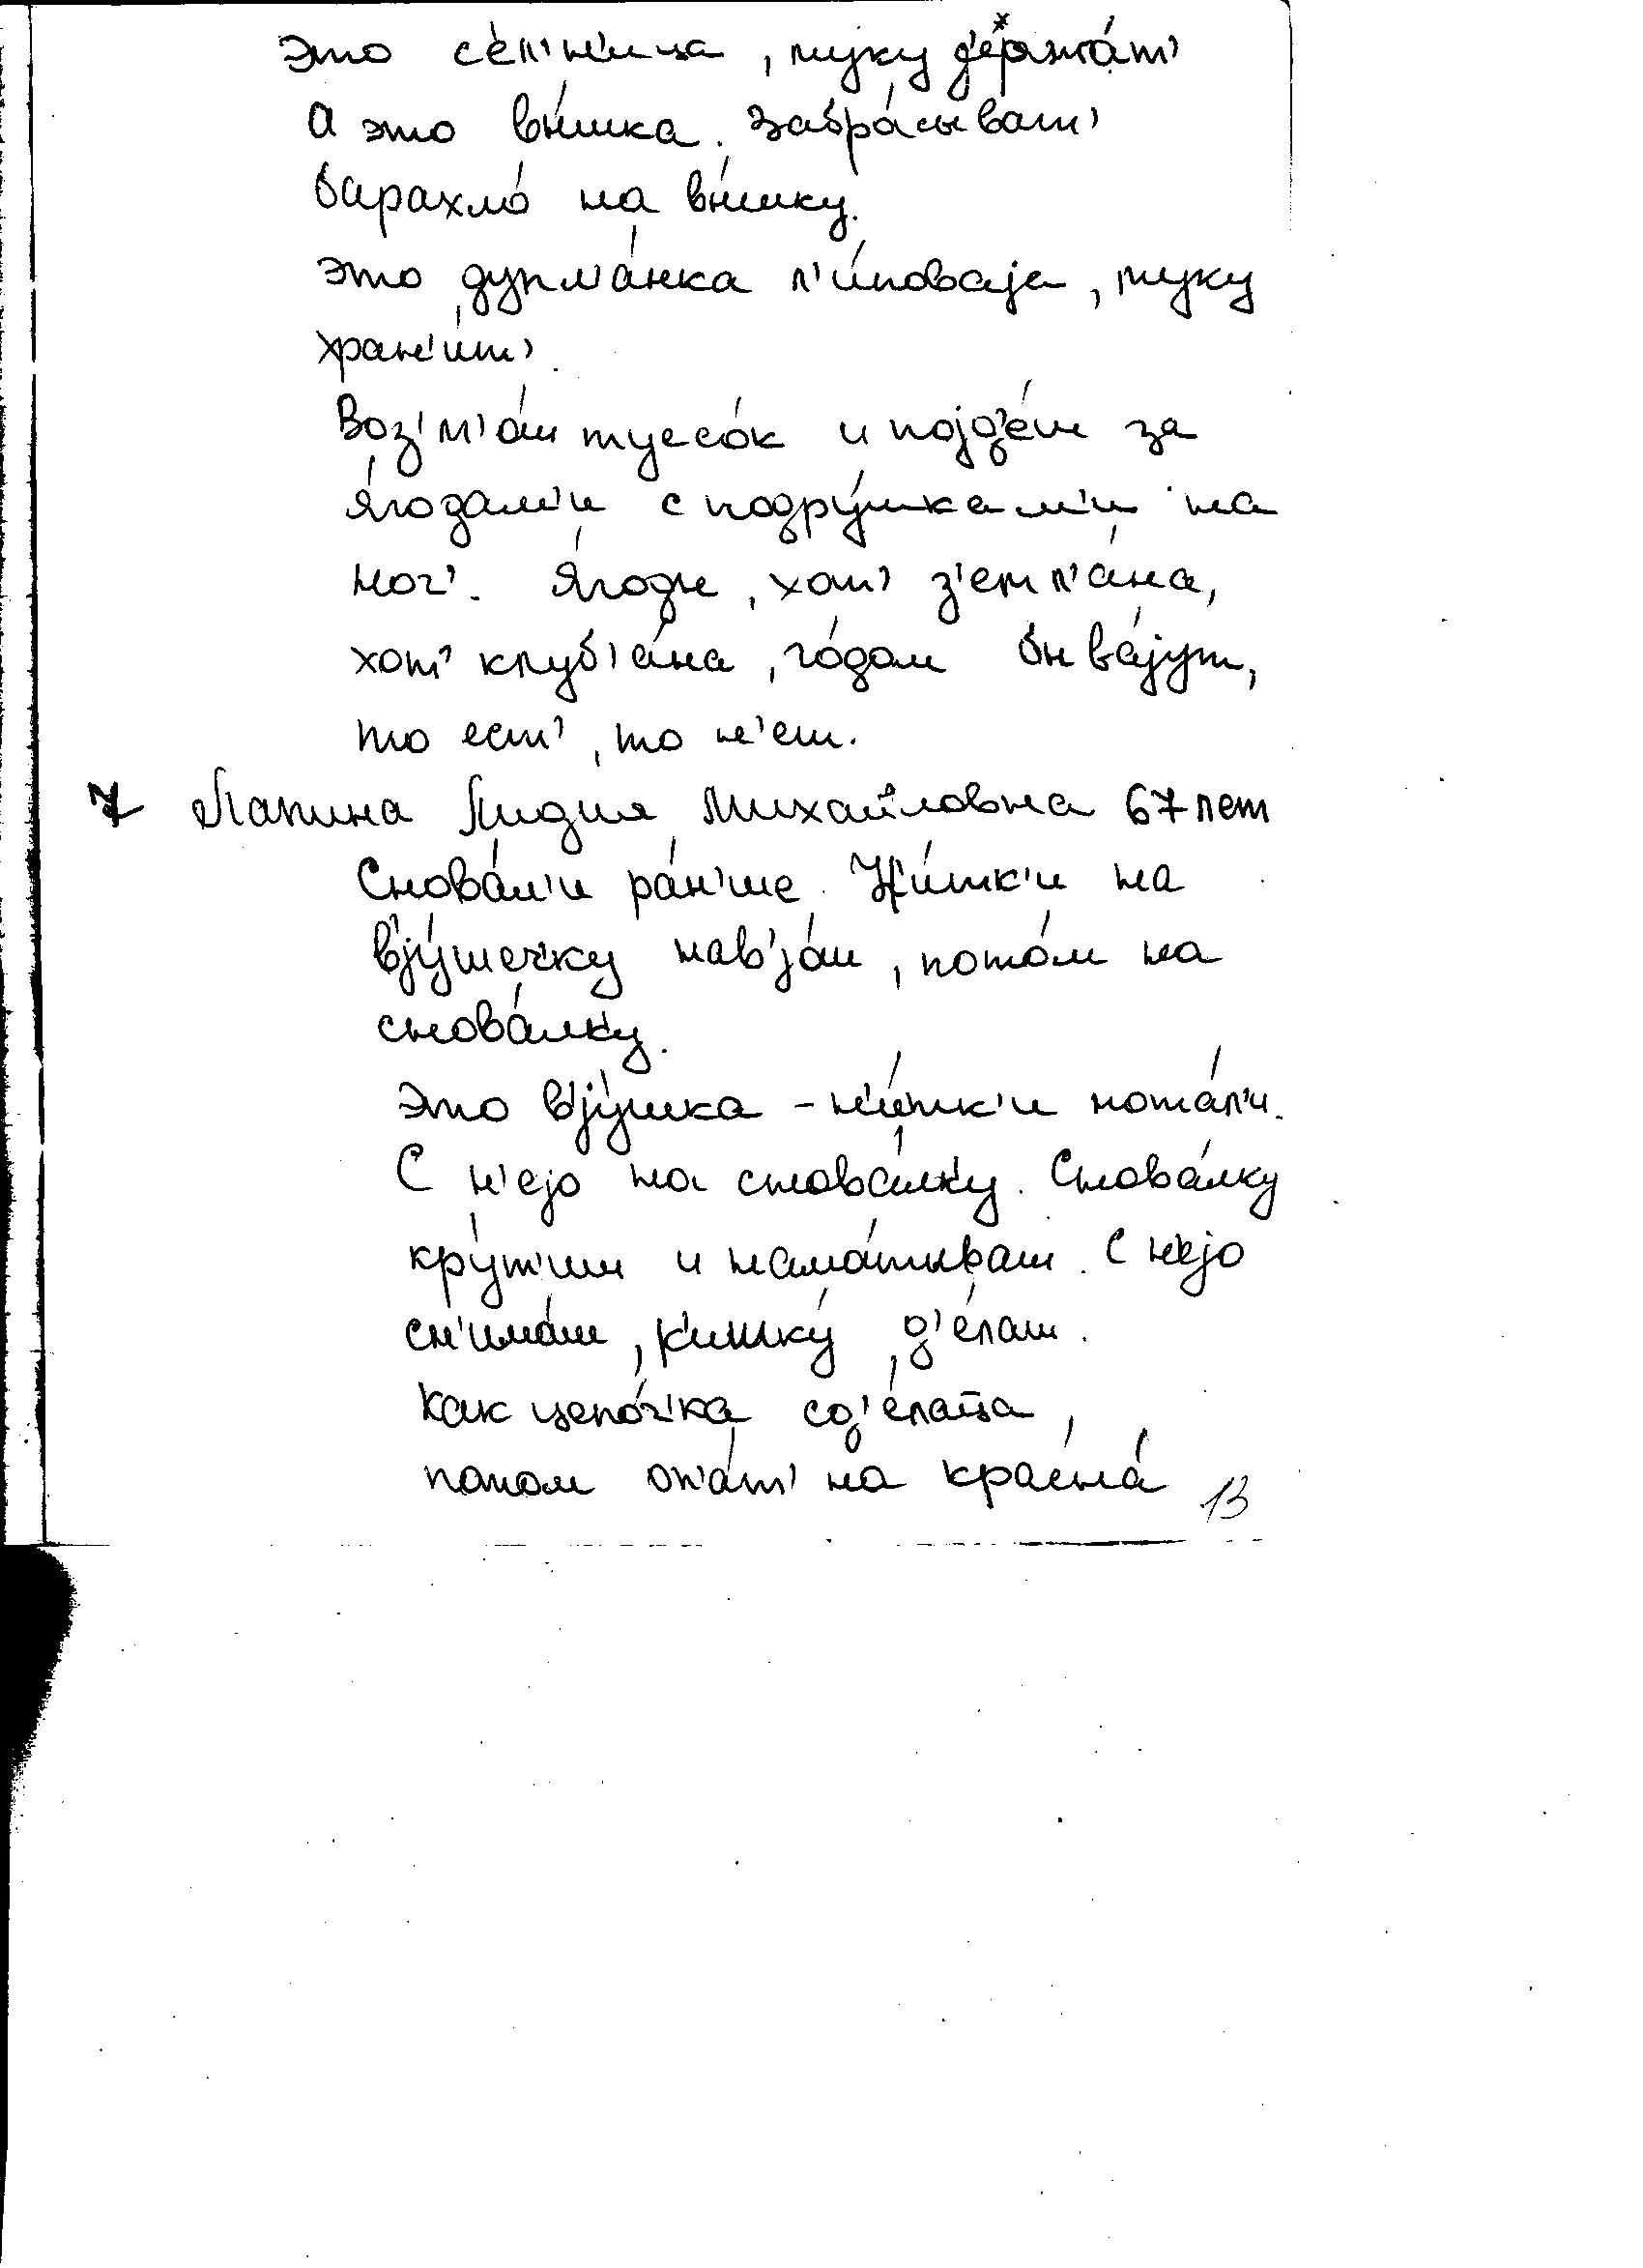 это се́л'н'ица, муку д'ержа́т'
А это вы́шка. Забра́сыват'
барахло́ на вы́шку.
Это дупл'а́нка л'и́поваjа, муку
хран'и́т'.
Воз'м'о́ш туесо́к и поjд'о́ш за
я́годам'и с подру́шкам'и на
ноч'. Я́годы, хот' з'емл'а́на,
хот' клуб'а́на, го́дом быва́jут,
то ест', то н'ет.
7 Лапина Лидия Михайловна 67 лет
Снова́л'и ра́н'ше. Ни́тк'и на
в'jу́шечку нав'jо́ш, пото́м на
снова́лку.
Это в'jу́шка – н'и́тк'и мота́л'и.
С н'еjо на снова́лку. Снова́лку
кру́т'иш и нама́тываш. С н'еjо
сн'има́ш, к'ишку́ д'е́лаш.
Как цепо́ч'ка сд'е́лаца,
потом оп'а́т' на красна́
13